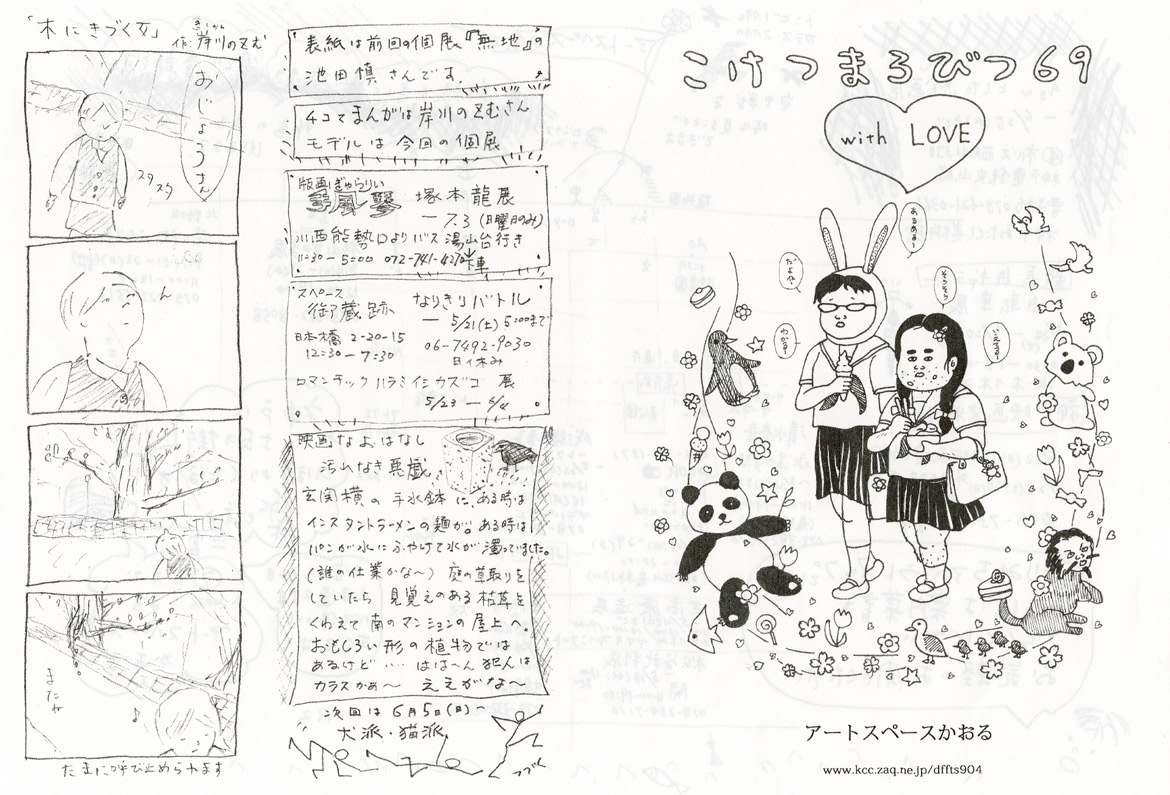 「木にきづく又」
作:岸川のぞむ
きしかわ
おじょうさん
スタスタ
ん
またね
たまに呼び止められます
表紙は前回の個展『無地』の
池田慎さんです.
4コマまんがは岸川のぞむさん
モデルは今回の個展
版画ぎゃらりい
塚本龍展
ー7.3(日曜日のみ)
川西能勢口よりバス湯山台行き
11:30-5:00 072-741-
下車
スペース
御蔵跡
なりきりバトル
ー5/21(土)5:00まで
日本橋2-20-15
12:30-7:30
06-7492-9030
日、休み
ロマンチックハラミ
展
5/23
映画なよはなし
汚れなき
玄関横の手水鉢に、ある時は
インスタントラーメンの麺が。ある時は
パンが水にふやけて水が濁っていました。
(誰の仕業かな〜)庭の草取りを
していたら、見覚えのある枯草を
くわえて南のマンションの屋上へ。
おもしろい形の植物では
あるけど…はは〜ん犯人は
カラスかぁ〜 ええがな〜
次回は6月5日(日)
犬派・猫派
つづく
こけつまろびつ69
with LOVE
あるある!
だよね〜
そうそう!
わかる〜
いえてる!
アートスペースかおる
www.kcc.zaq.ne.jp/dffts904